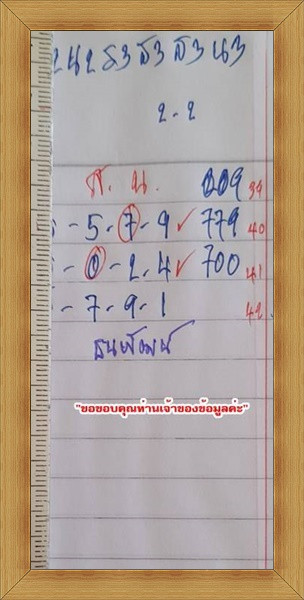 2-2
ศ. น. 209 39
- 5 - 7 - 9 ✓ 779 40
- 0 - 2 - 4 ✓ 700 41
- 7 - 9 - 1 42
ธนพัฒน์
"ขอขอบคุณท่านเจ้าของข้อมูลค่ะ"